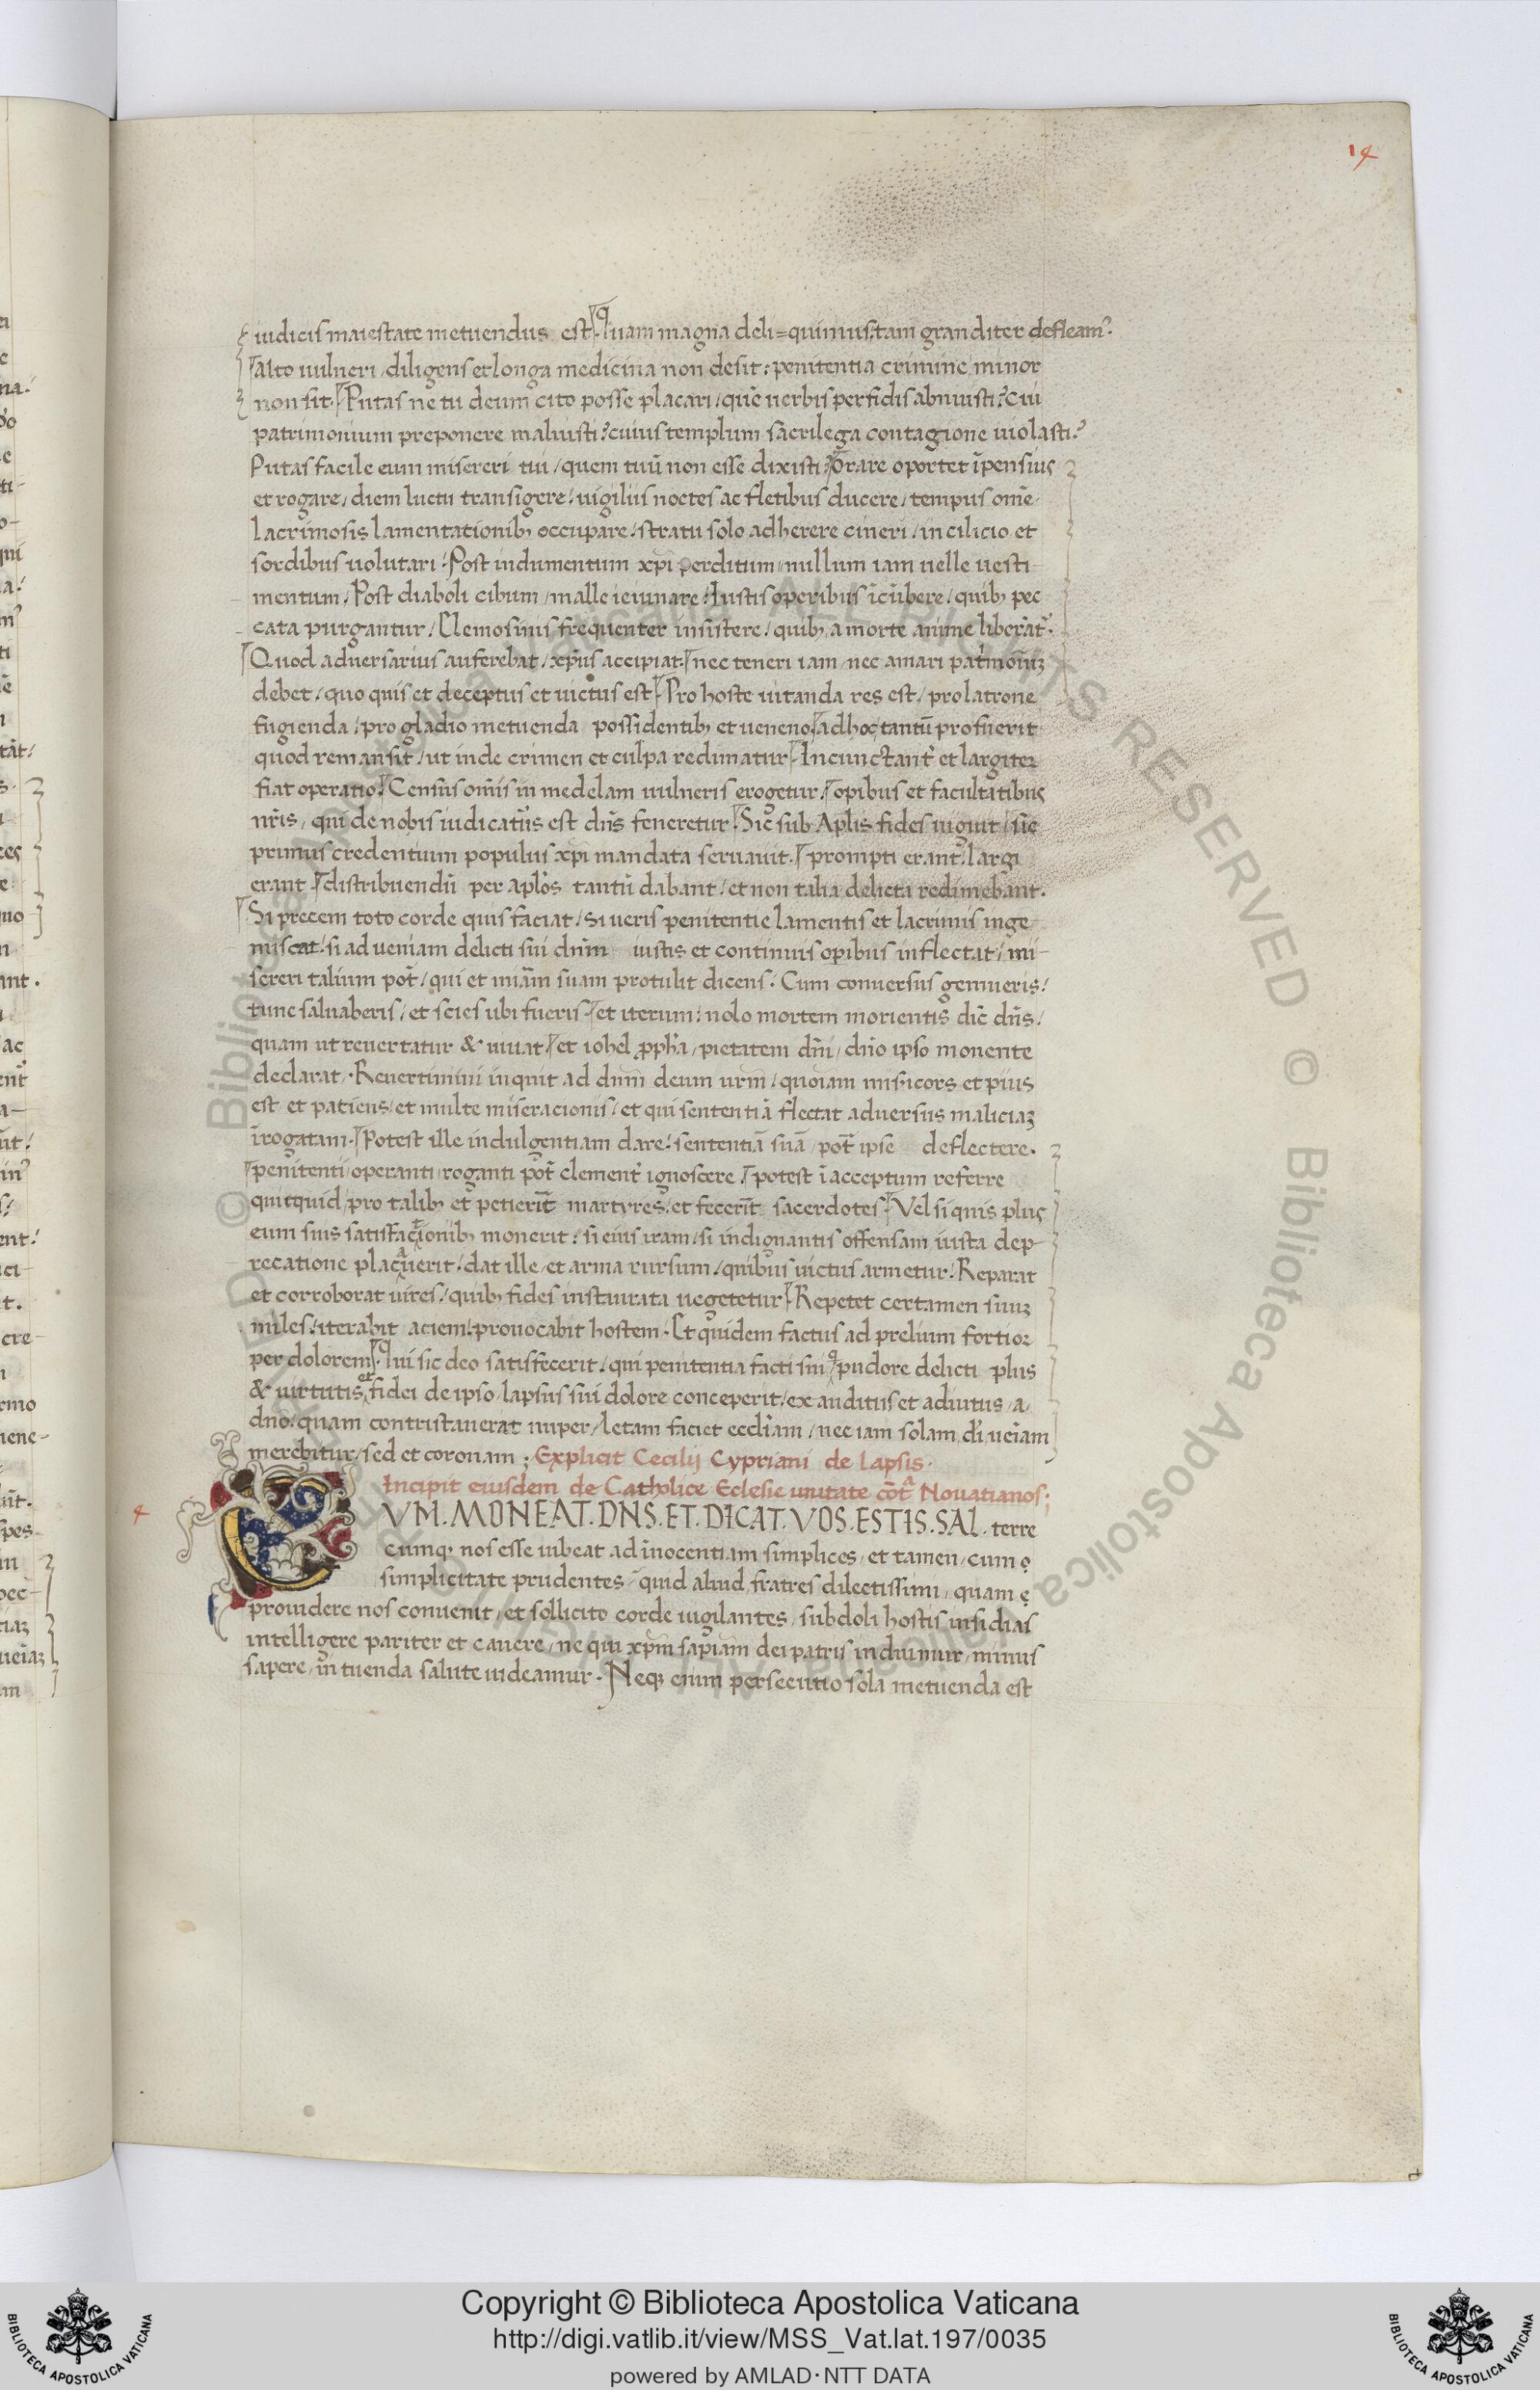 14
iudicis maiestate metuendus est. Quam magna deli=quimus. tam granditer defleam?
Alto uulneri / diligens et longa medicina non desit: penitentia crimine minor
non sit. Putas ne tu deum cito posse placari / quē uerbis perfidis abnuisti? Cui
patrimonium preponere maluisti? cuius templum sacrilega contagione uiolasti?
Putas facile eum misereri tui / quem tuū non esse dixisti? Orare oportet īpensius
et rogare / diem luctu transigere / uigiliis noctes ac fletibus ducere / tempus omē
lacrimosis lamentationib; occupare / stratu solo adherere cineri / in cilicio et
sordibus uolutari / Post indumentum xp̄i perditum / nullum iam uelle uesti-
mentum / Post diaboli cibum / malle ieiunare / Iustis operibus īcūbere / quib; pec
cata purgantur / Elemosinis frequenter insistere / quib; a morte anime liberāt᷒.
Quod aduersarius auferebat / xp̄us accipiat. nec teneri iam / nec amari pat'moīuʒ
debet / quo quis et deceptus et uictus est. Pro hoste uitanda res est / pro latrone
fugienda / pro gladio metuenda possidentib; et ueneno. ad hoc tantū profuerit
quod remansit / ut inde crimen et culpa redimatur. Incunctant' et largiter
fiat operatio. Census omīs in medelam uulneris erogetur. opibus et facultatibus
nr̄is, qui de nobis iudicat'us est dn̄s feneretur. Sic sub Aplis fides uiguit / sic
primus credentium populus xp̄i mandata seruauit. prompti erant. largi
erant. distribuendū per aplōs tantū dabant / et non talia delicta redimebant.
Si precem toto corde quis faciat / si ueris penitentie lamentis et lacrimis inge
miscat / si ad ueniam delicti sui dn̄m iustis et continuis opibus inflectat / mi-
sereri talium pot̄ / qui et miām suam protulit dicens. Cum conuersus gemueris /
tunc saluaberis / et scies ubi fueris. et iterum: nolo mortem morientis dic̄ dn̄s /
quam ut reuertatur & uiuat. et iohel p̄pħa / pietatem dn̄i / dn̄o ipso monente
declarat. Reuertimini inquit ad dnm̄ deum urm̄ / quoiam mis'icors et pius
est et patiens / et multe miseracionis / et qui sententiā flectat aduersus maliciaʒ
īrogatam. Potest ille indulgentiam dare / sententiā suā pot̄ ipse deflectere.
penitenti / operanti / roganti pot̄ clement' ignoscere. potest ī acceptum referre
quitquid / pro talib; et petierīt martyres / et fecerīt sacerdotes. Vel si quis plus
eum suis satisfactionib; mouerit / si eius iram / si indignantis offensam iusta dep-
recatione placauerit / dat ille / et arma rursum / quibus uictus armetur. Reparat
et corroborat uires / quib; fides instaurata uegetetur. Repetet certamen suuʒ
miles / iterabit aciem / prouocabit hostem. Et quidem factus ad prelium fortior
per dolorem. Qui sic deo satisfecerit / qui penitentia facti sui / q pudore delicti plus
& uirtutis et fidei de ipso lapsus sui dolore conceperit / exauditus et adiutus / a
dn̄o / quam contristauerat nuper / letam faciet eccl'iam / nec iam solam di' ueīam
merebitur / sed et coronam ; Explicit Cecilij Cypriani de Lapsis.
Incipit eiusdem de Catholice Eclesie unitate cōt̄ Nouatianos;
4
CVM. MONEAT. DNS. ET. DICAT. VOS. ESTIS. SAL. terre
cumq; nos esse iubeat ad īnocentiam simplices, et tamen / cum
simplicitate prudentes / quid aliud fratres dilectissimi, quam
prouidere nos conuenit / et sollicito corde uigilantes, subdoli hostis insidias
intelligere pariter et cauere / ne qui xp̄m sapiam dei patris induimur / minus
sapere in tuenda salute uideamur. Neq; enim persecutio sola metuenda est
Copyright © Biblioteca Apostolica Vaticana
http://digi.vatlib.it/view/MSS_Vat.lat.197/0035
powered by AMLAD·NTT DATA
BIBLIOTECA APOSTOLICA VATICANA
BIBLIOTECA APOSTOLICA VATICANA